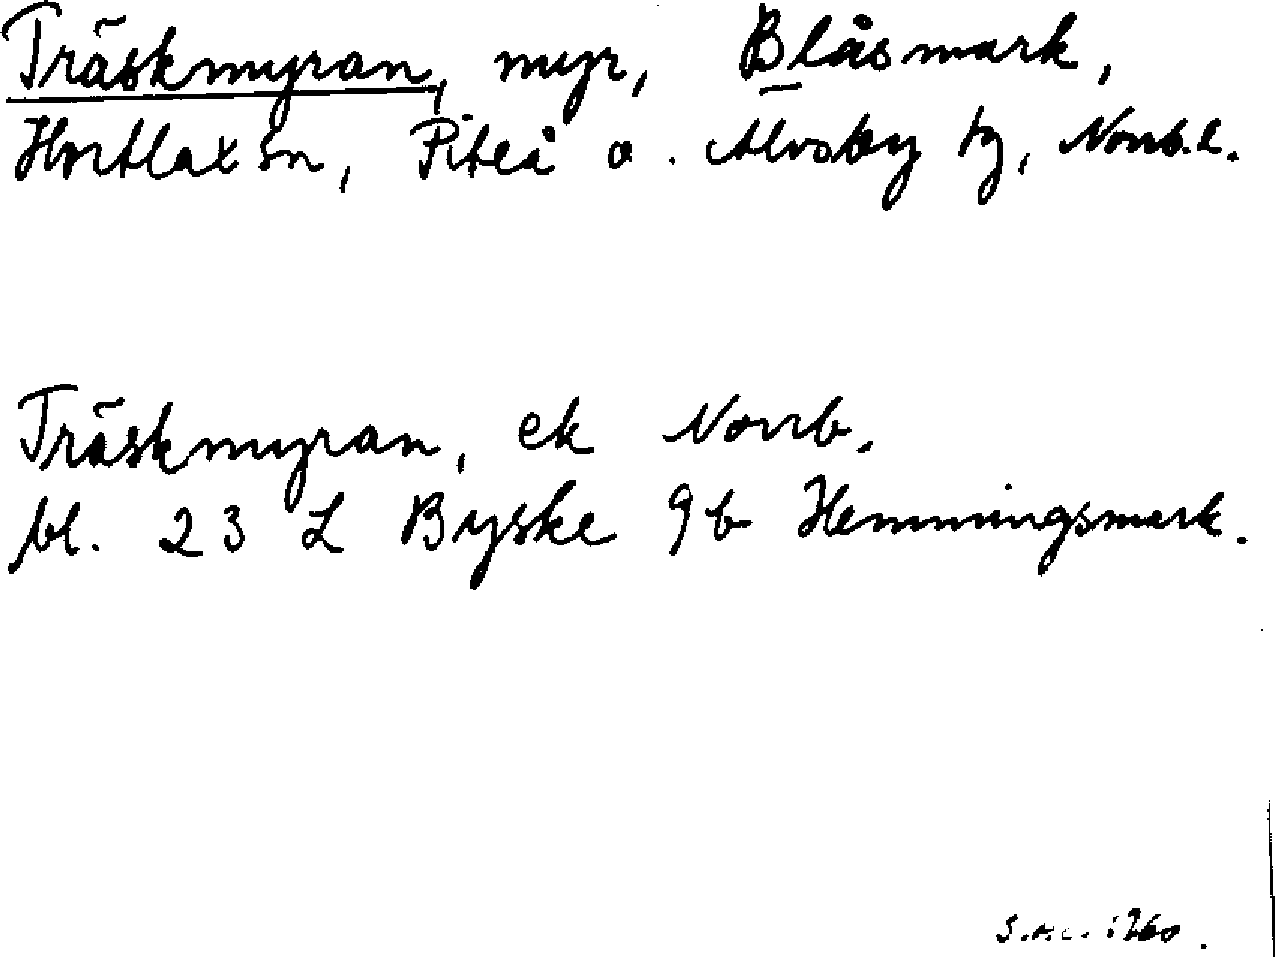 Träskmyran, myr, Blåsmark,
Hortlax sn, Piteå o. Älvsby tg, Norrb.l.
Träskmyran, ek Norrb.
bl. 23 L Byske 9b Hemmingsmark.
1960.